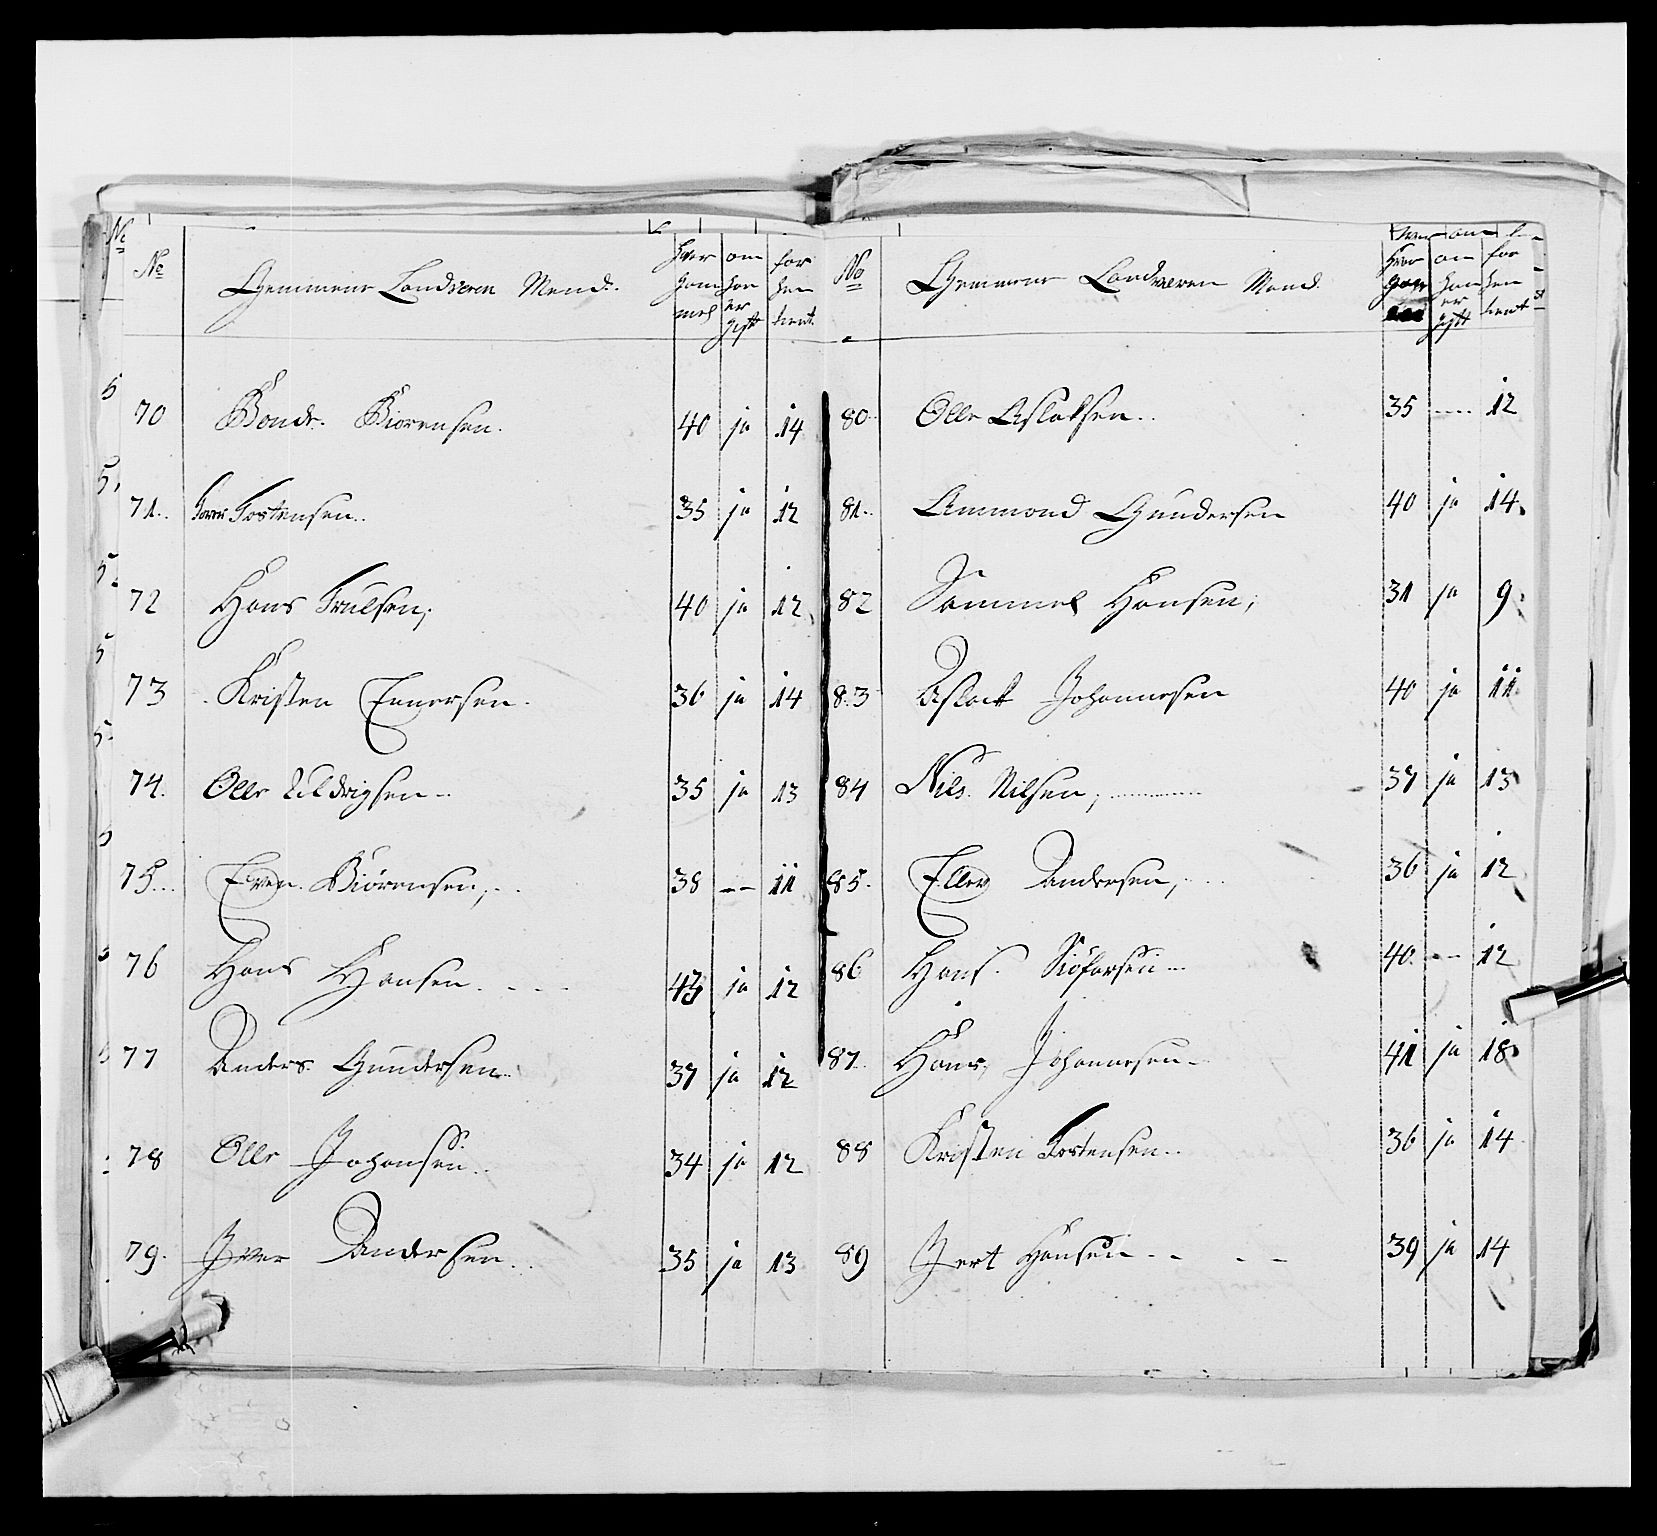 No Gemmene Landvern Mend. hver gam mel om han er gift for hen tient
70 Bonde. Biørensen. 40 ja 14
71. Torer Tostensen.. 35 ja 12
72 Hans Trulsen; 40 ja 12
73 Kristen Ennersen. 36 ja 14
74. Olle Uldrigsen 35 ja 13
75... Even. Biørensen; 38 -- 11
76 Hans Hansen. 43 ja 12
77 Anders Gundersen 37 ja 12
78 Olle Johansen.. 34 ja 12
79. Iver Andersen.. 35 ja 13
No Gemmene Landværen Mend. hvor gam om han er gift for hen tient
80 Olle Aslaksen.. 35 ---- 12
81.. Ammond Gundersen 40 ja 14.
82 Sammel Hansen; 31 ja 9.
83 Aslack Johannesen 40 ja 11.
84 Nils. Nilsen; 37 ja 13
85. Ellev Andersen, 36 ja 12
86 Hans. Siøfarsen 40. --- 12
87. Hans, Johannesen 41 ja 18
88 Kristen Tostensen.. 36 ja 14
89 Gert Hansen 39 ja 14